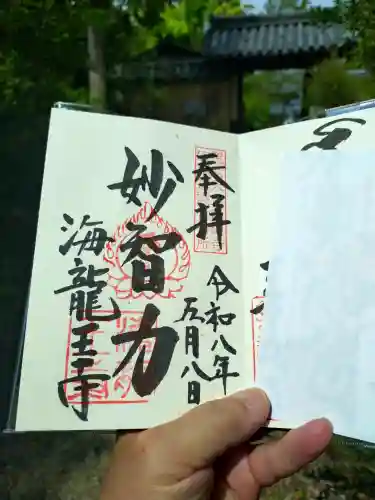 奉拝
令和八年
五月八日
妙智力
海龍王寺